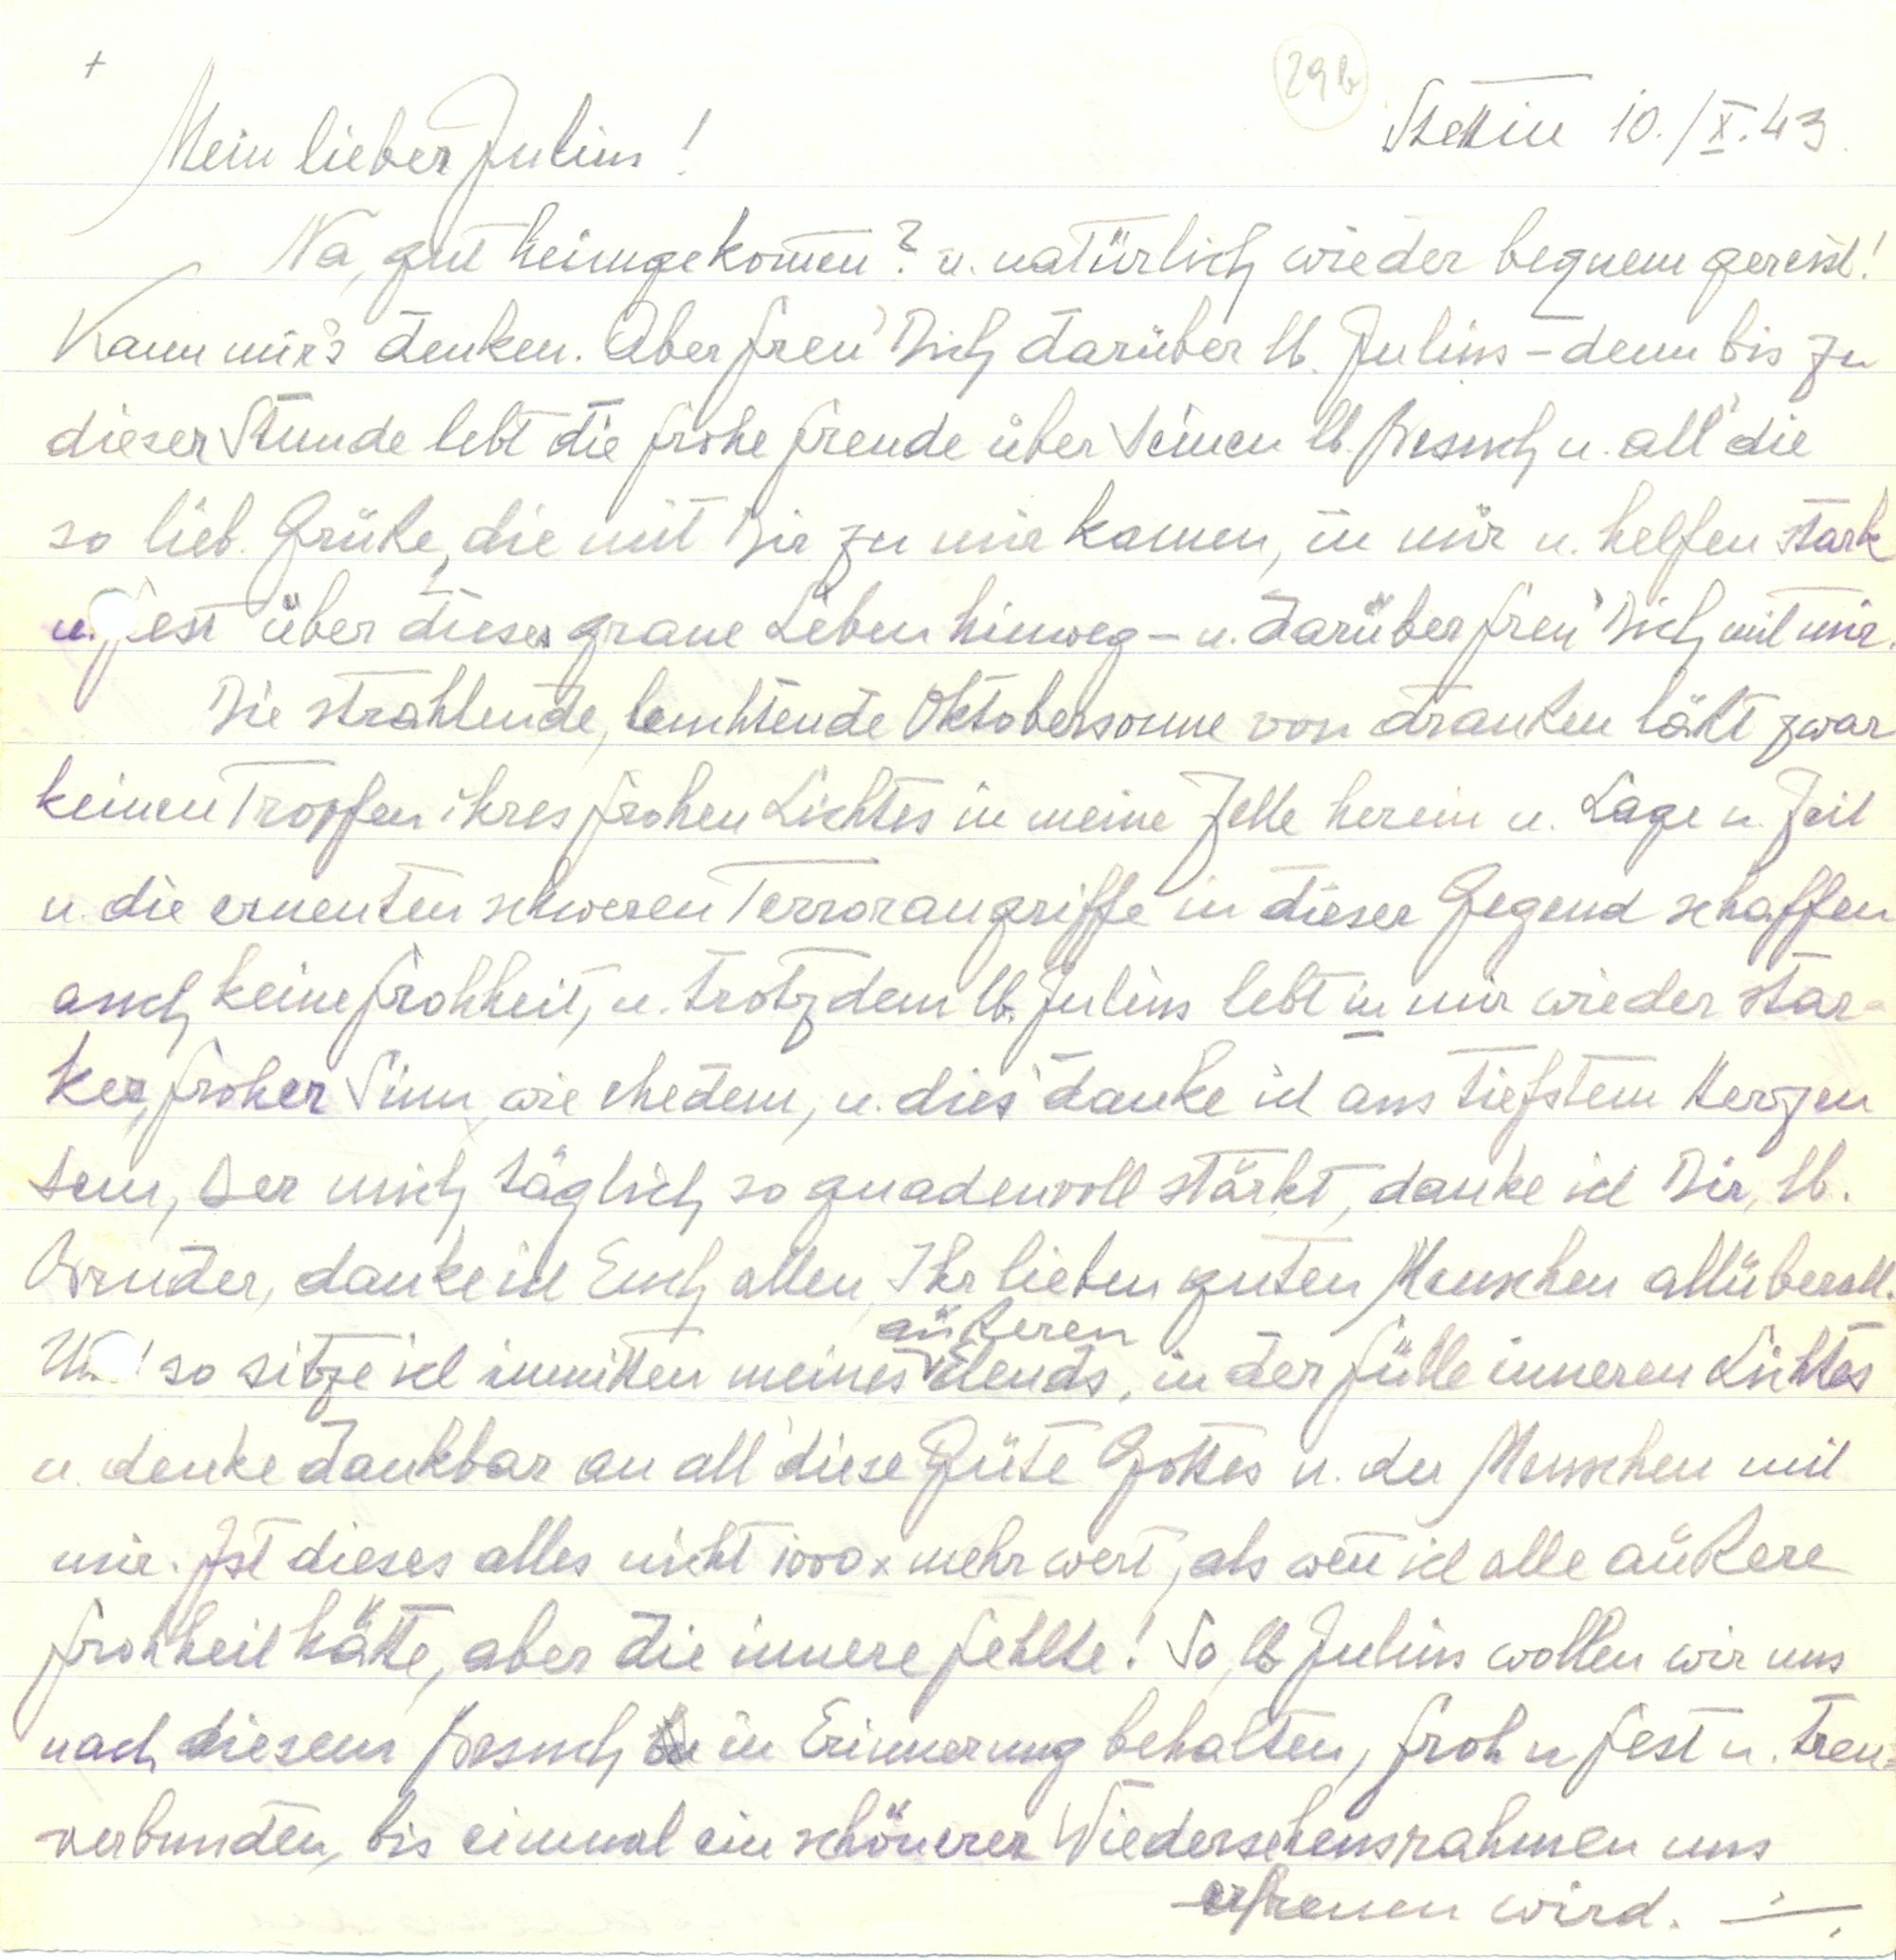 +
29b
Stettin 10./X.43.
Mein lieber Julius!
Na, gut heimgekom̅en? u. natürlich wieder bequem gereist!
Kann mir's denken. Aber freu' Dich darüber lb. Julius – denn bis zu
dieser Stunde lebt die frohe Freude über Deinen lb. Besuch u. all' die
so lieb. Grüße, die mit Dir zu mir kamen, in mir u. helfen stark
u. fest über dieses graue Leben hinweg – u. darüber freu' Dich mit mir.
Die strahlende, leuchtende Oktobersonne von draußen läßt zwar
keinen Tropfen ihres frohen Lichtes in meine Zelle herein u. Lage u. Zeit
u. die erneuten schweren Terrorangriffe in dieser Gegend schaffen
auch keine Frohheit, u. trotzdem lb. Julius lebt in mir wieder star-
ker, froher Sinn, wie ehedem, u. dies danke ich aus tiefstem Herzen
Dem, Der mich täglich so gnadenvoll stärkt, danke ich Dir, lb.
Bruder, danke ich Euch allen, Ihr lieben guten Menschen allüberall.
äußeren
Und so sitze ich inmitten meines Elends, in der Fülle inneren Lichtes
u. denke dankbar an all' diese Güte Gottes u. der Menschen mit
mir. Ist dieses alles nicht 1000x mehr wert, als wen̅ ich alle äußere
Frohheit hätte, aber die innere fehlte! So, lb Julius wollen wir uns
nach diesem Besuch in Erinnerung behalten, froh u fest u. treu-
verbunden, bis einmal ein schönerer Wiedersehensrahmen uns
erfreuen wird. —